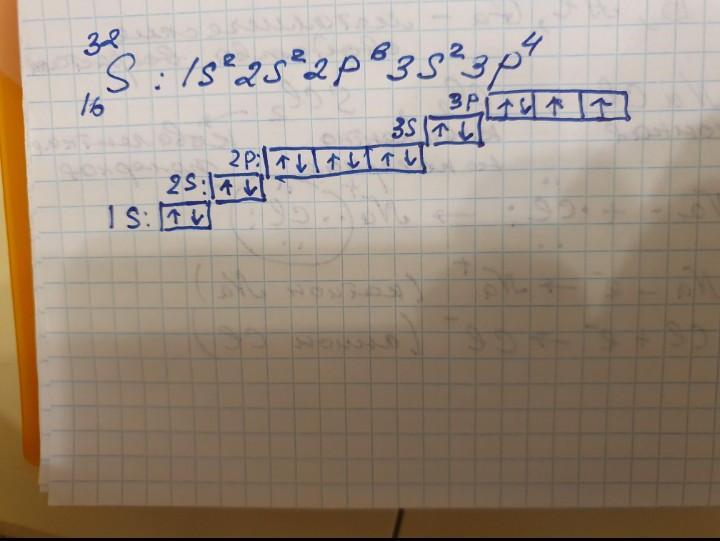 32
16 S : 1S² 2S² 2P⁶ 3S² 3P⁴
3P ↑↓ ↑ ↑
3S ↑↓
2P: ↑↓ ↑↓ ↑↓
2S: ↑↓
1S: ↑↓